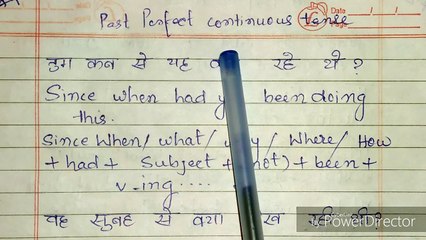 Past Perfect continuous tense
तुम कब से यह रहे थे?
Since when had been doing
this.
Since When/ what/ / Where/ How
+ had + Subject + not) + been +
v-ing.....
वह सुबह से क्या रही थी?
PowerDirector